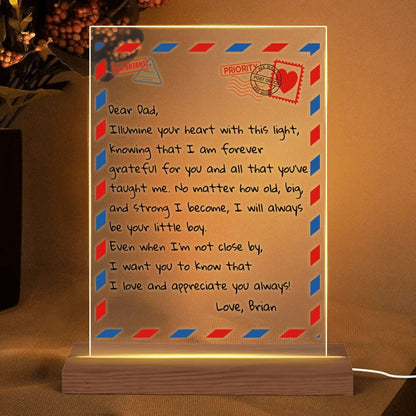 PRIORITY
POST OFFICE
Dear Dad,
Illumine your heart with this light,
knowing that I am forever
grateful for you and all that you've
taught me. No matter how old, big,
and strong I become, I will always
be your little boy.
Even when I'm not close by,
I want you to know that
I love and appreciate you always!
Love, Brian